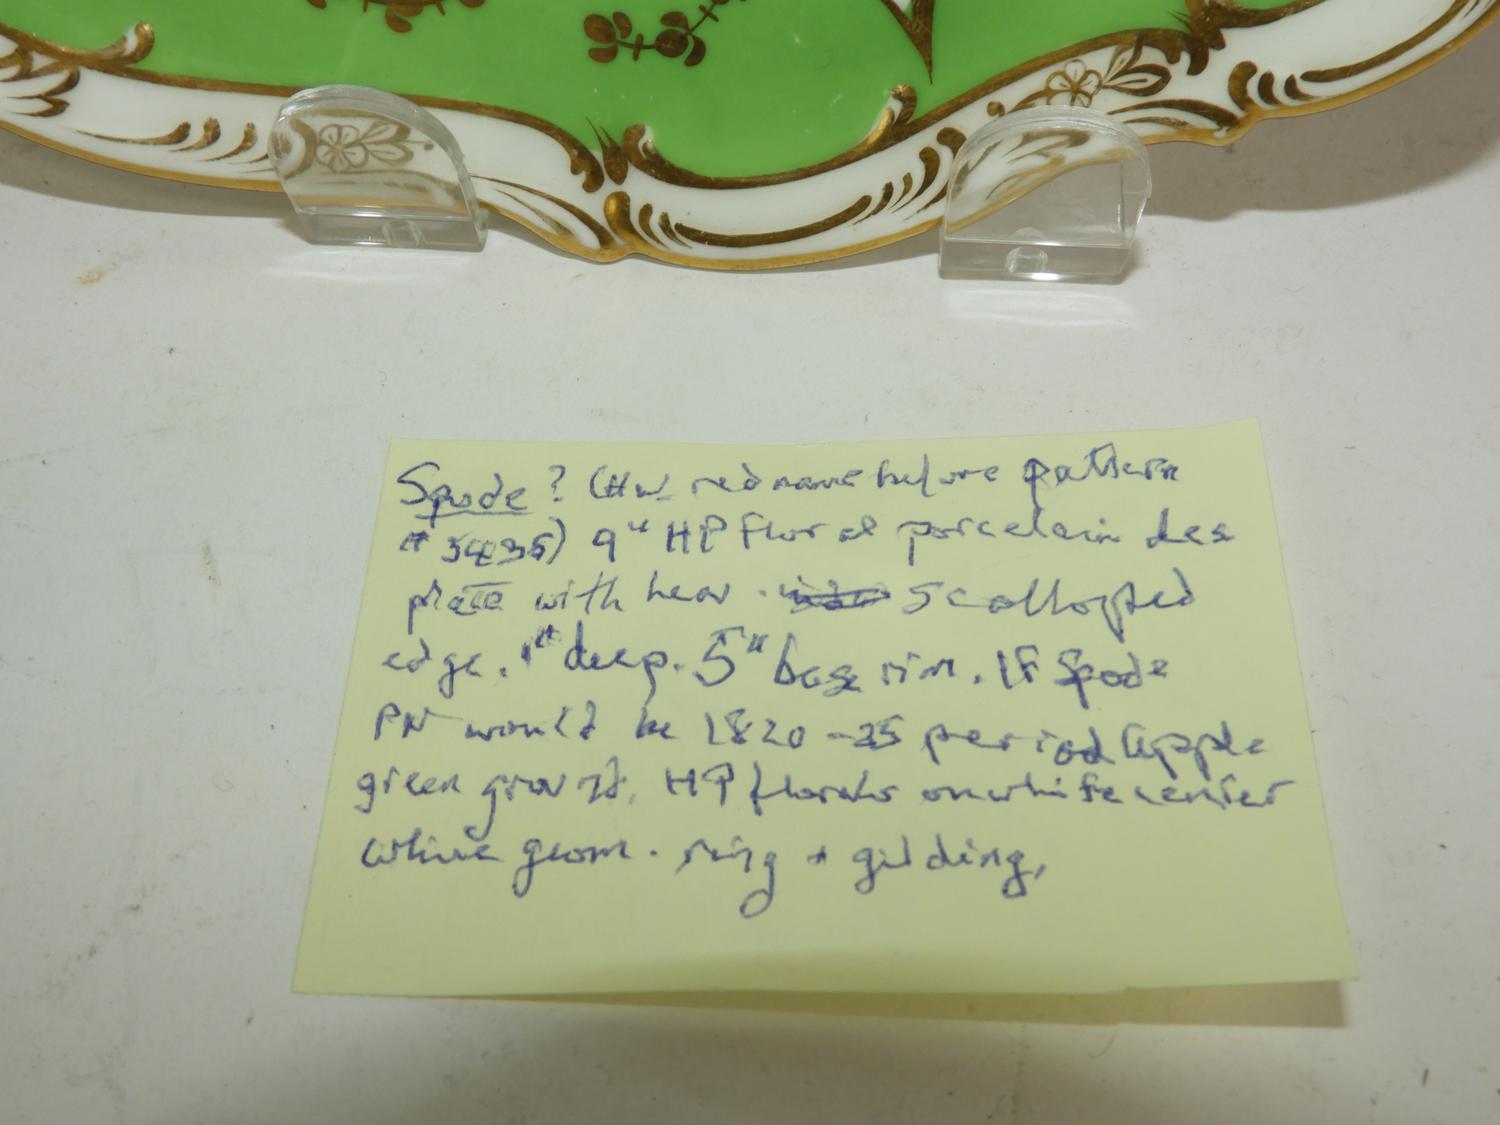 Spode? (HW red name before pattern
# 5435) 9" HP Floral porcelain des
plate with heav. scallopted
edge. 1" deep. 5" base rim. If Spode
PN would be 1820-25 period Apple
green ground. HP florals on white center
white geom. ring + gilding,